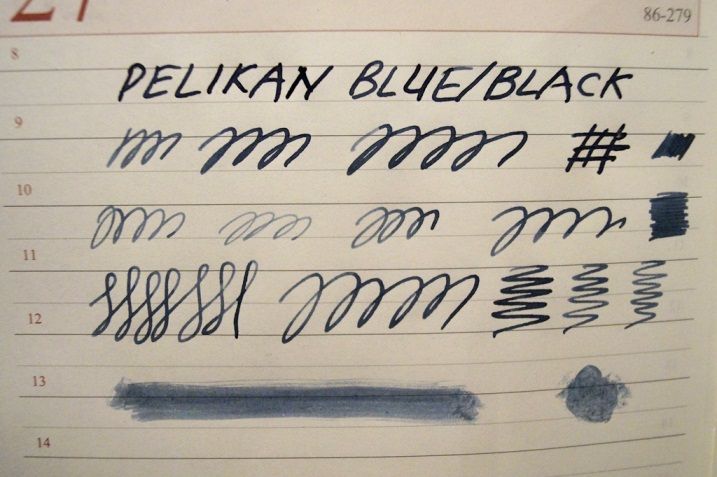 86-279
8
PELIKAN BLUE/BLACK
9
#
10
11
12
13
14